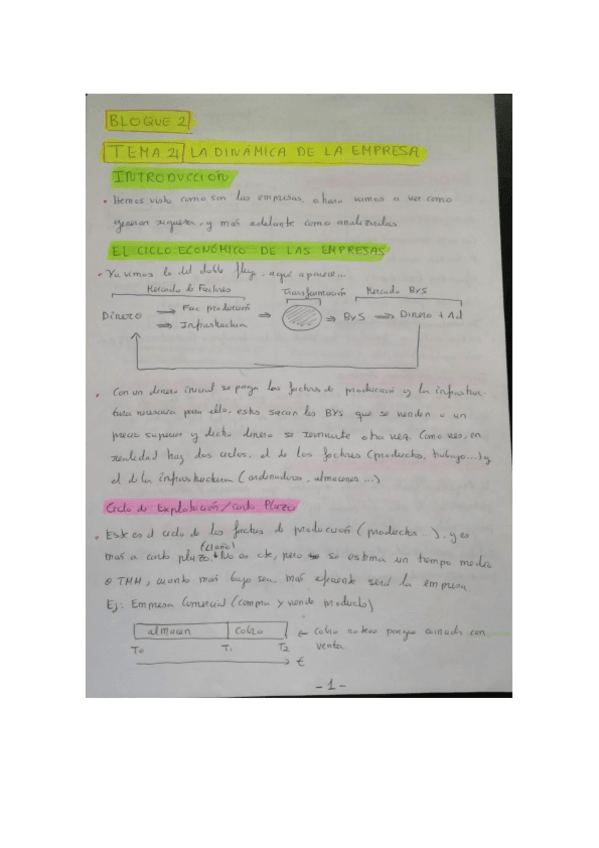 BLOQUE 2
TEMA 2 LA DINÁMICA DE LA EMPRESA
INTRODUCCIÓN
• Hemos visto como son las empresas, ahora vamos a ver como
generan riqueza, y más adelante como analizarlas.
EL CICLO ECONÓMICO DE LAS EMPRESAS
• Ya vimos lo del doble flujo, aquí aparece...
Mercado de Factores Transformación Mercado BYS
Dinero → Fac producción → Infraestructura ⇒ ⇒ BYS ⇒ Dinero +
• Con un dinero inicial se paga los factores de producción y la infraestruc-
tura necesaria para ello, estos sacan los BYS que se venden a un
precio superior y dicho dinero se reinvierte otra vez. Como veo, en
realidad hay dos ciclos, el de los factores (productos, trabajo...) y
el de la infraestructura (ordenadores, almacenes ...)
Ciclo de Explotación/corto Plazo
• Este es el ciclo de los factores de producción (productos ...), y es
(<1año)
más a corto plazo. No es cte, pero se estima un tiempo medio
o TMM, cuanto más bajo sea, más eficiente será la empresa
Ej: Empresa Comercial (compra y vende producto)
almacen cobro ← Cobro no tiene porque coincidir con
venta
T0 T1 T2
t
-1-